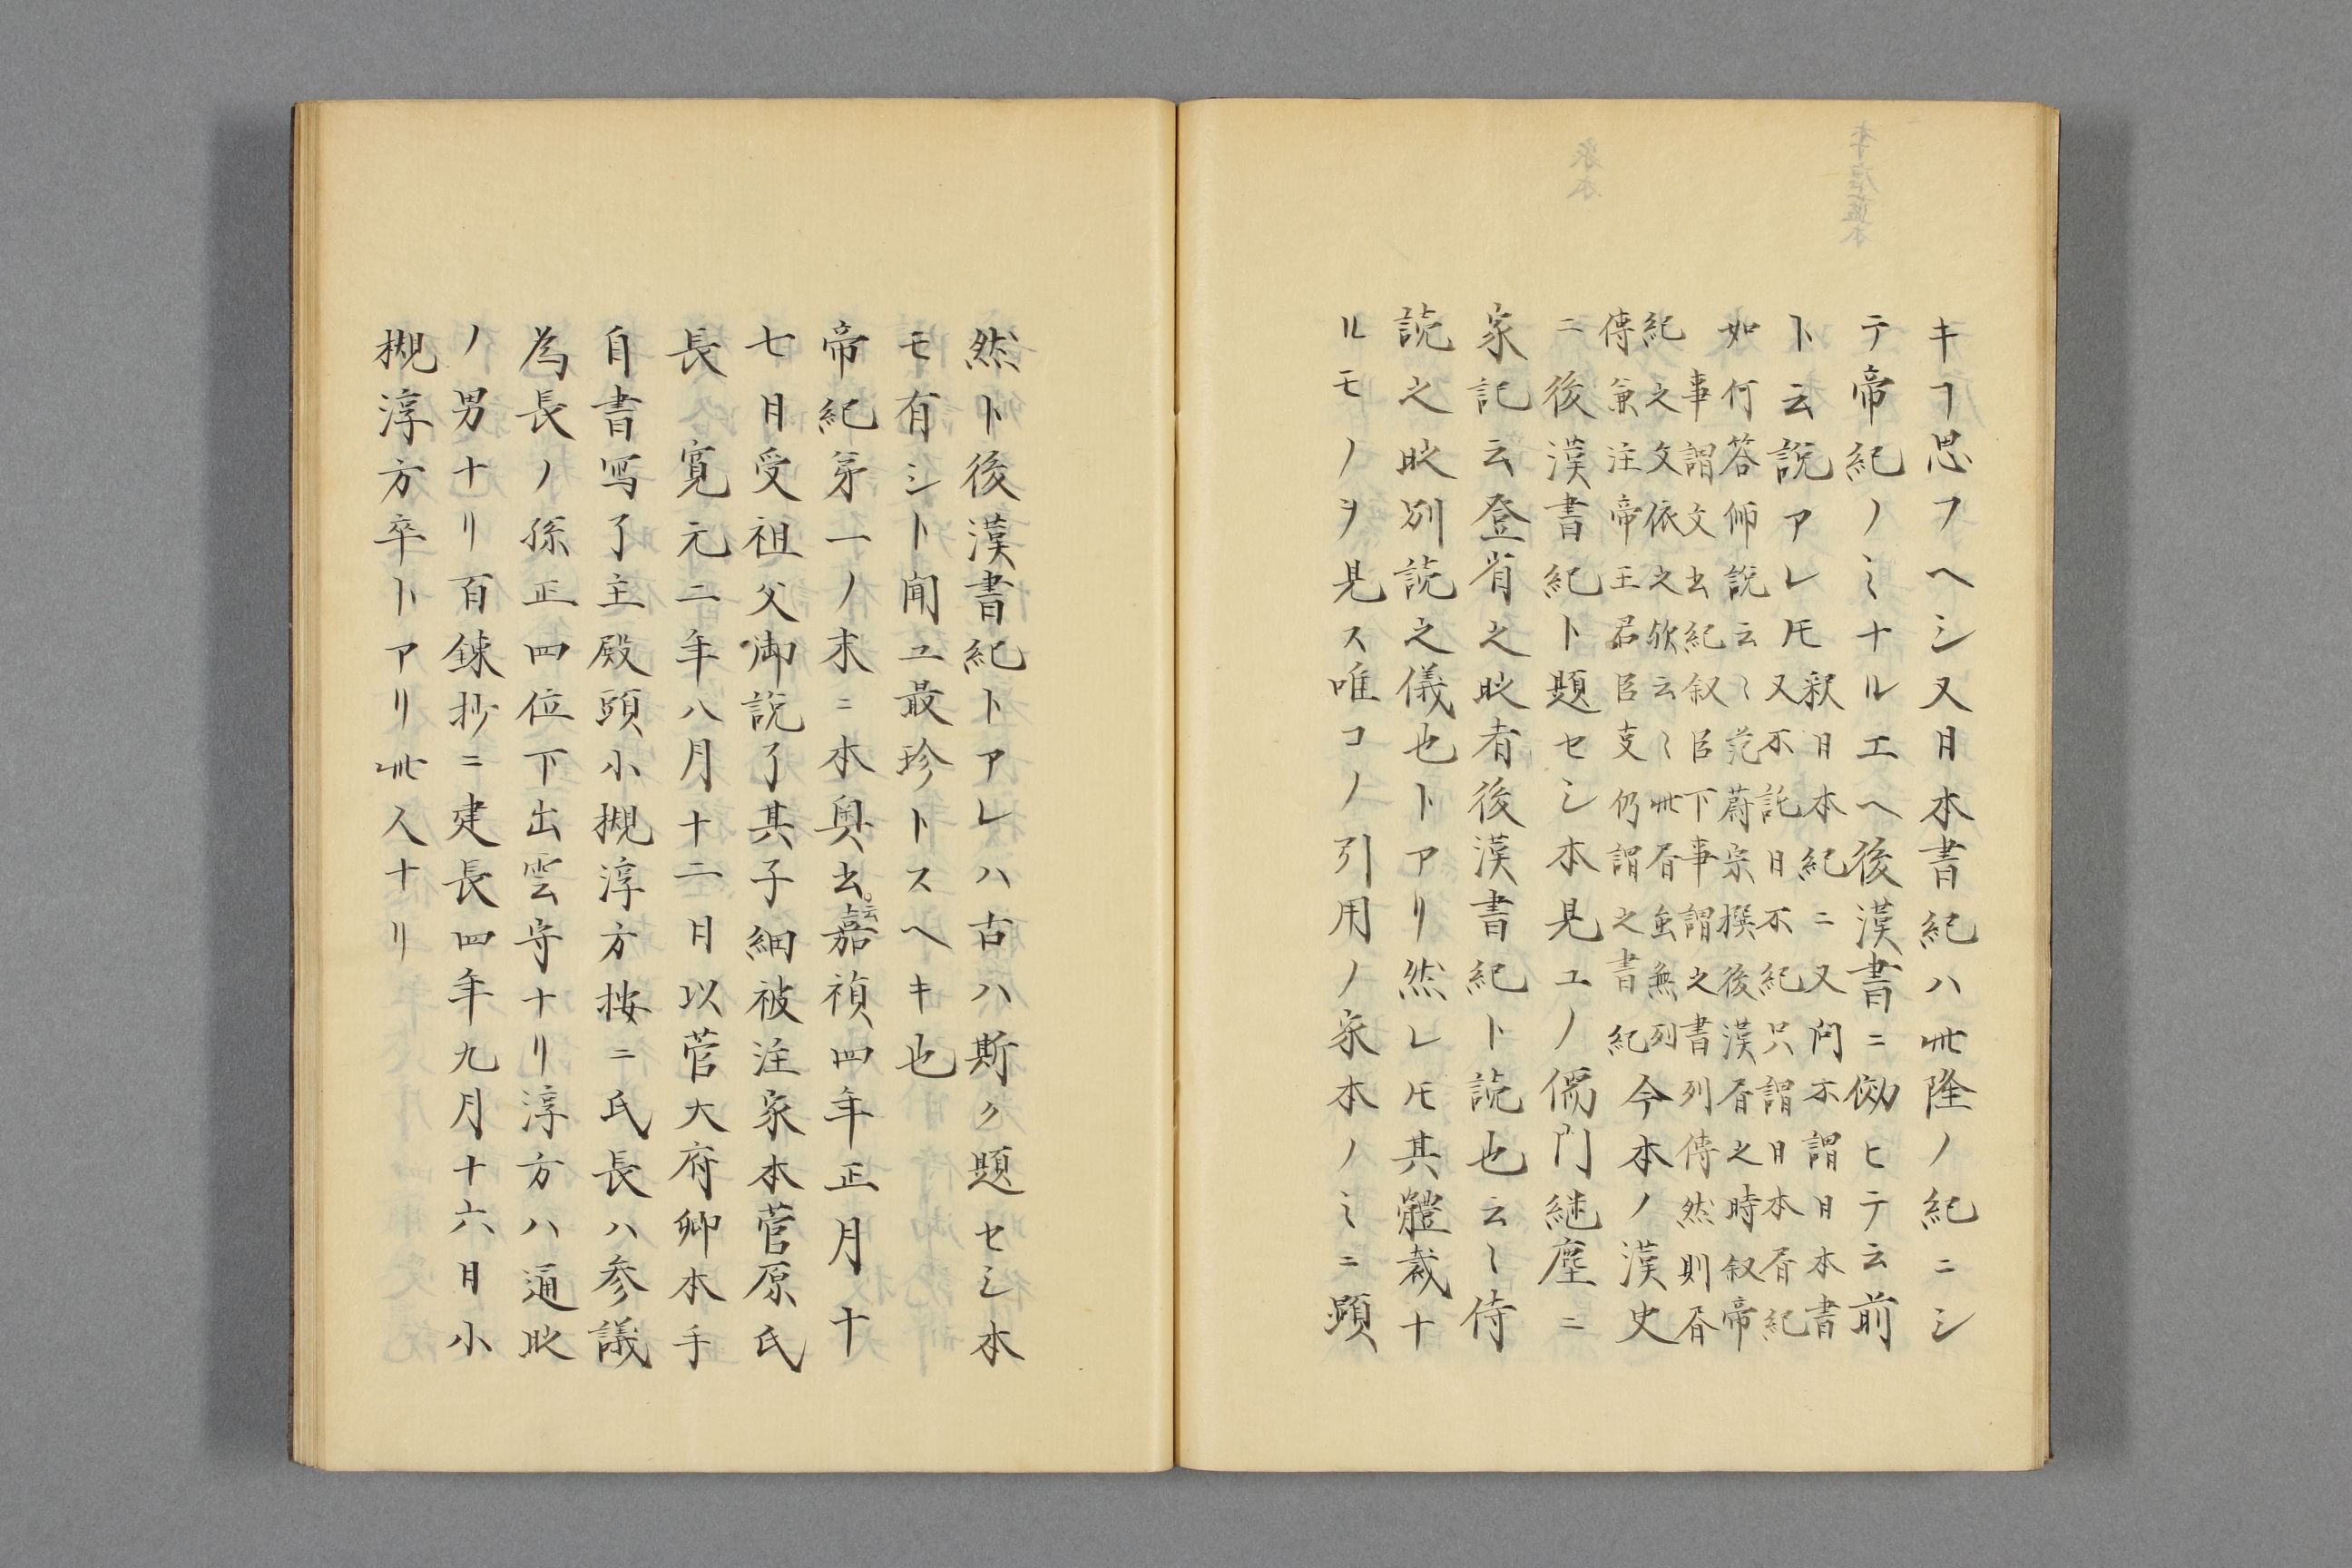 キヿ思フヘシ又日本書紀ハ此隆ノ紀ニシ
テ帝紀ノミナルエヘ後漢書ニ倣ヒテ云前
ト云説アレ𪜈釈日本紀ニ又問不謂日本書
又不詫日不紀只謂日本書紀
如何答師説云〻范蔚宗撰後漢書之時叙帝
事謂文出紀叙臣下事謂之書列傳然則書
紀之文依之欤云〻此書虽無列
傳兼注帝王君臣支仍謂之書紀今本ノ漢史
ニ後漢書紀ト題セシ本見ユノ儒門継塵ニ
家記云登省之時者後漢書紀ト読也云〻侍
読之時別読之儀也トアリ然レ𪜈其軆裁ナ
ルモノヲ見ス唯コノ引用ノ家本ノミニ顕
然ト後漢書紀トアレハ古ハ斯ク題セシ本
モ有シト聞ユ最珍トスヘキ也
帝紀第一ノ末ニ本奥書云嘉禎四年正月十
七日受祖父御説了其子細被注家本菅原氏
長寛元二年八月十二日以菅大府卿本手
自書写了主殿頭小槻淳方按ニ氏長ハ参議
為長ノ孫正四位下出雲守ナリ淳方ハ通時
ノ男ナリ百錬抄ニ建長四年九月十六日小
槻淳方卒トアリ此人ナリ